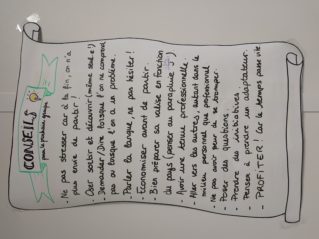 CONSEILS
pour le prochain groupe
- Ne pas stresser car à la fin, on n'a
plus envie de partir !
- Oser sortir et découvrir (même seul.e !)
- Demander/Dire lorsque l'on ne comprend
pas ou lorsque l'on a un problème.
- Parler la langue, ne pas hésiter !
- Economiser avant de partir.
- Bien préparer sa valise en fonction
du pays (penser au parapluie)
- Avoir une tenue professionnelle.
- Aller vers les autres, autant dans le
milieu personnel que professionnel
- Ne pas avoir peur de se tromper.
- Poser des questions.
- Prendre des initiatives.
- Penser à prendre un adaptateur.
- PROFITER ! Car le temps passe vite